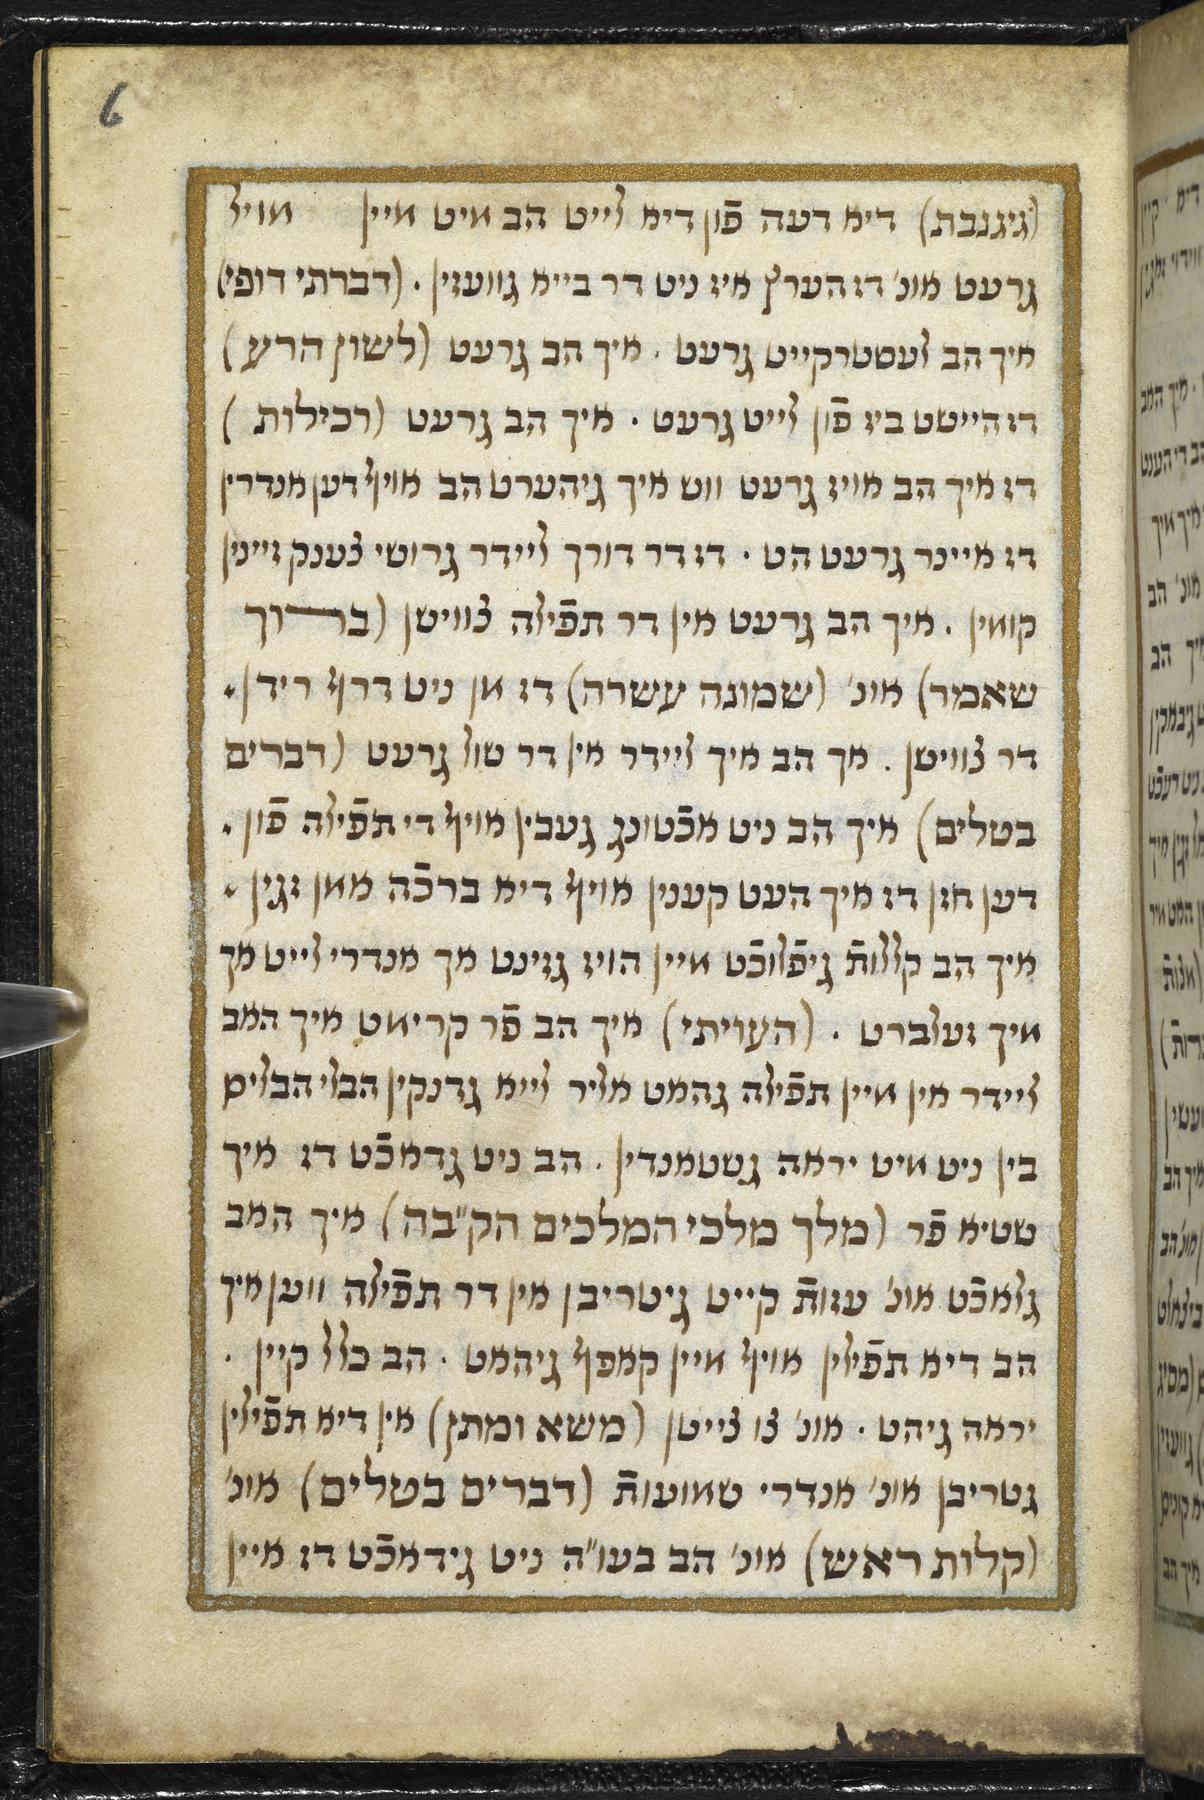 6
(גיגנבת) דיא דעה פֿון דיא לייט הב מיט מיין מויל
גרעט אונ' דז הערץ איז ניט דר בייא גוועזין . (דברתי דופי)
איך הב לעסטרקייט גרעט . איך הב גרעט (לשון הרע)
דז הייסט ביז פֿון לייט גרעט . איך הב גרעט (רכילות)
דז איך הב אויז גרעט ווש איך גיהערט הב אויף דען אנדרין
דז איינר גרעט הט . דז דר דורך ליידר גרושי צענק זיינין
קומין . איך הב גרעט אין דר תפֿילה צווישן (ברוך
שאמר) אונ' (שמונה עשרה) דז מן ניט דרף רידן.
דר צווישן . אך הב איך ליידר אין דר שול גרעט (דברים
בטלים) איך הב ניט אכֿטונג געבין אויף די תפֿילה פֿון.
דען חזן דז איך העט קענין אויף דיא ברכֿה אמן זגין.
איך הב קללותֿ גיפֿלוכֿט מיין הויז גזינט אך אנדרי לייט אך
מיך זעלברט . (העויתי) איך הב פֿר קריאט איך האב
ליידר אין מיין תפֿילה גהאט אליר לייא גדנקין הבלי הבלים
בין ניט מיט יראה גשטאנדין . הב ניט גדאכֿט דז איך
שטיא פֿר (מלך מלכי המלכים הק"בה) איך האב
גלאכֿט אונ' עזותֿ קייט גיטריבן אין דר תפֿילה ווען איך
הב דיא תפֿילין אויף מיין קאפף גיהאט . הב כלל קיין .
יראה גיהט . אונ' צו צייטן (משא ומתן) אין דיא תפֿילין
גטריבן אונ' אנדרי שמועותֿ (דברים בטלים) אונ'
(קלות ראש) אונ' הב בעו"ה ניט גידאכֿט דז איין